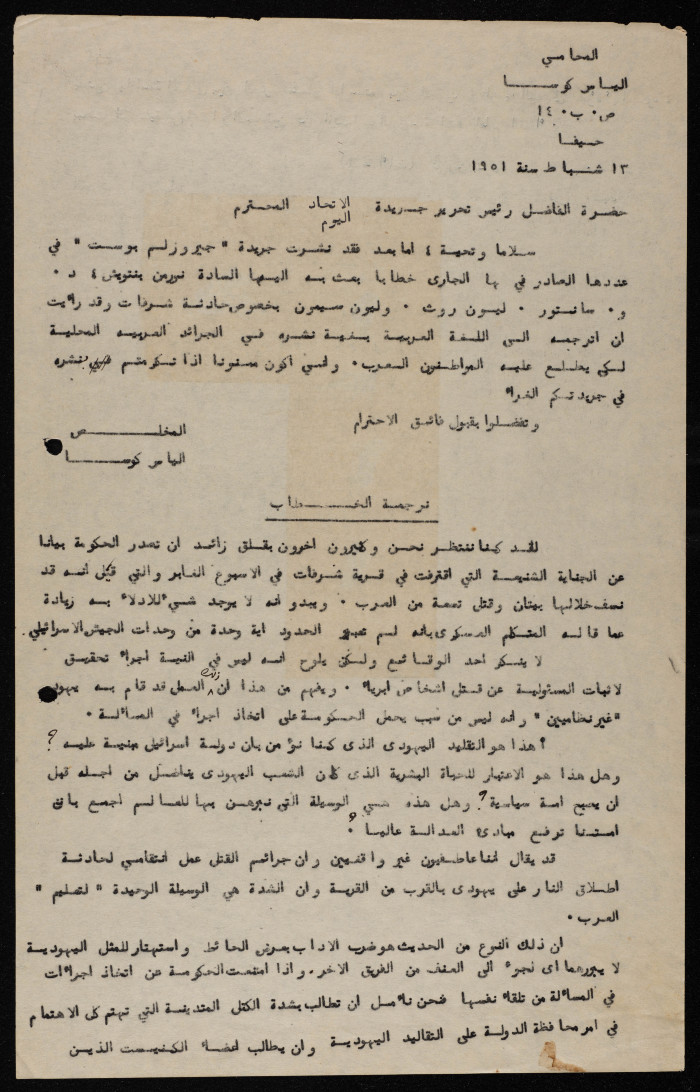 المحامي
الياس كوسا
ص. ب. ١٤٠
حيفا
١٣ شباط سنة ١٩٥١
حضرة الفاضل رئيس تحرير جريدة الاتحاد المحترم
اليوم
سلاما وتحية ٤ اما بعد فقد نشرت جريدة " جيروزلم بوست " في
عددها الصادر في الجارى خطابا بعث به اليها السادة نورمن بنتويش ٤ د.
و. سانتور . ليون روث . وليون سيمون بخصوص حادثة شرفات وقد رأيت
ان اترجمه الى اللغة العربية بغية نشره في الجرائد العربيه المحلية
لكي يطلع عليه المواطنون العرب. واني اكون ممنونا اذا تكرمتم بنشره
في جريدتكم الغراء
وتفضلوا بقبول فائق الاحترام
المخلص
الياس كوسا
ترجمة الخطاب
لقد كنا ننتظر نحن وكثيرون اخرون بقلق زائد ان تصدر الحكومة بيانا
عن الجناية الشنيعة التي اقترفت في قرية شرفات في الاسبوع الغابر والتي قيل انه قد
نسف خلالها بيتان وقتل تسعة من العرب . ويبدو انه لا يوجد شيء للادلاء به زيادة
عما قاله المتكلم العسكرى بانه لم تعبر الحدود اية وحدة من وحدات الجيش الاسرائيلي.
لا ينكر احد الوقائع ولكن يلوح انه ليس في النية اجراء تحقيق
لاثبات المسئولية عن قتل اشخاص ابرياء . ويفهم من هذا ان ذلك العمل قد قام به يهود
"غير نظاميين " وانه ليس من سبب يحمل الحكومة على اتخاذ اجراء في المسألة .
أ هذا هو التقليد اليهودى الذى كنا نؤمن بان دولة اسرائيل مبنية عليه ؟
وهل هذا هو الاعتبار للحياة البشرية الذى كان الشعب اليهودى يناضل من اجله قبل
ان يصبح امة سياسية ؟ وهل هذه هي الوسيلة التي نبرهن بها للعالم اجمع بان
امتنا ترفع مبادئ العدالة عاليا ؟
قد يقال لنا عاطفيون غير واقعيين وان جرائم القتل عمل انتقامي لحادثة
اطلاق النار على يهودى بالقرب من القرية وان الشدة هي الوسيلة الوحيدة " لتعليم "
العرب .
ان ذلك النوع من الحديث هو ضرب الاداب بعرض الحائط واستهتار للمثل اليهودية
لا يبررهما اى لجوء الى العنف من الفريق الاخر. واذا امتنعت الحكومة عن اتخاذ اجراءات
في المسألة من تلقاء نفسها فنحن نأمل ان تطالب بشدة الكتل المتدينة التي تهتم كل الاهتمام
في امر محافظة الدولة على التقاليد اليهودية وان يطالب اعضاء الكنيست الذين